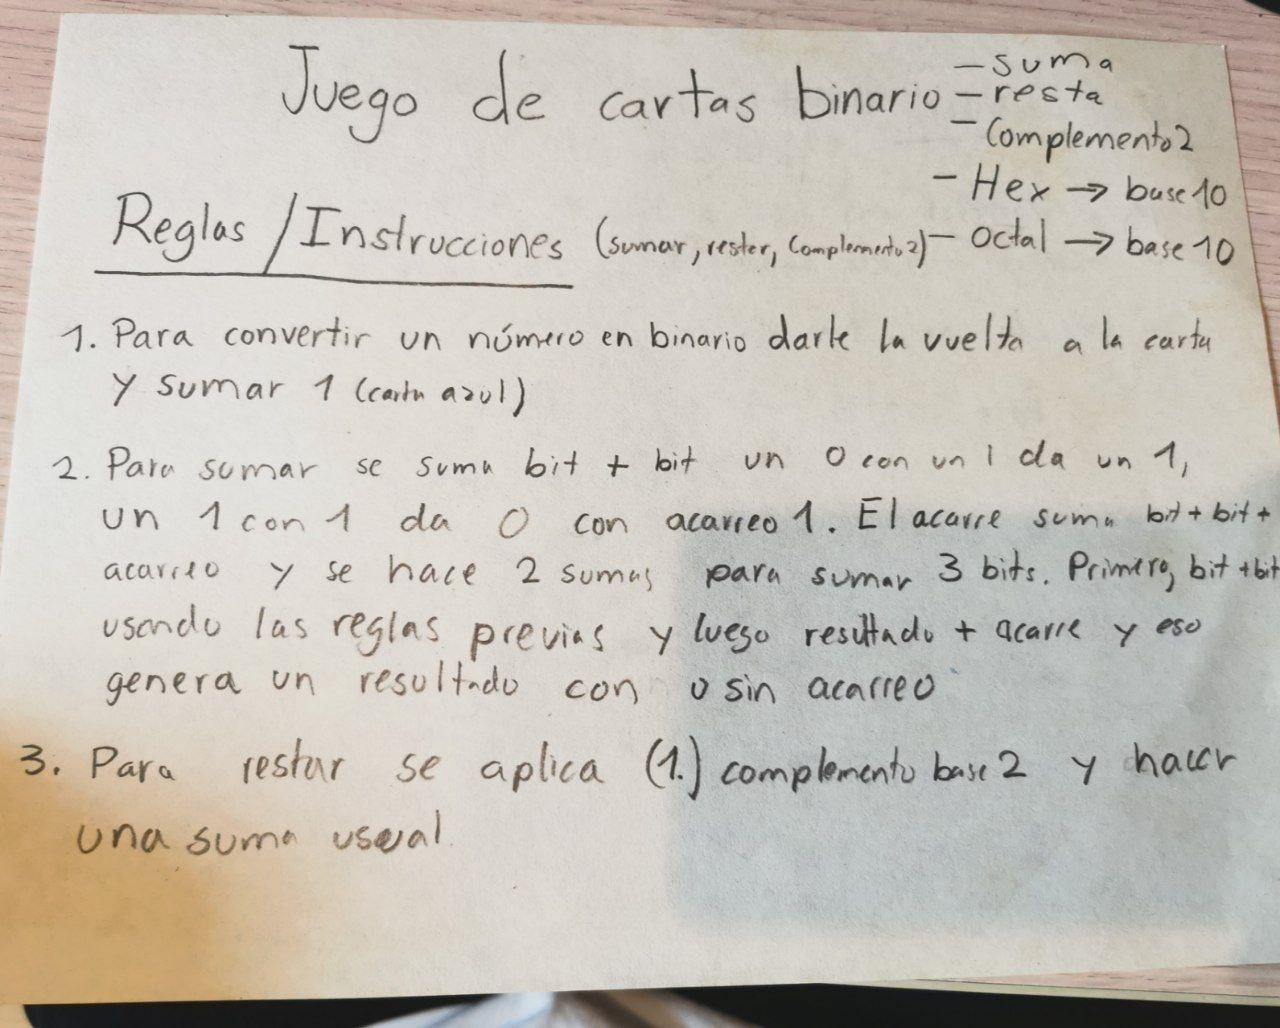 Juego de cartas binario
- suma
- resta
- Complemento 2
- Hex → base 10
- Octal → base 10
Reglas / Instrucciones (sumar, rester, Complemento 2)
1. Para convertir un número en binario darle la vuelta a la carta
y sumar 1 (carta azul)
2. Para sumar se suma bit + bit un 0 con un 1 da un 1,
un 1 con 1 da 0 con acarreo 1. El acarre suma bit + bit +
acarreo y se hace 2 sumas para sumar 3 bits. Primero, bit + bit
usando las reglas previas y luego resultado + acarre y eso
genera un resultado con o sin acarreo
3. Para restar se aplica (1.) complemento base 2 y hacer
una suma usual